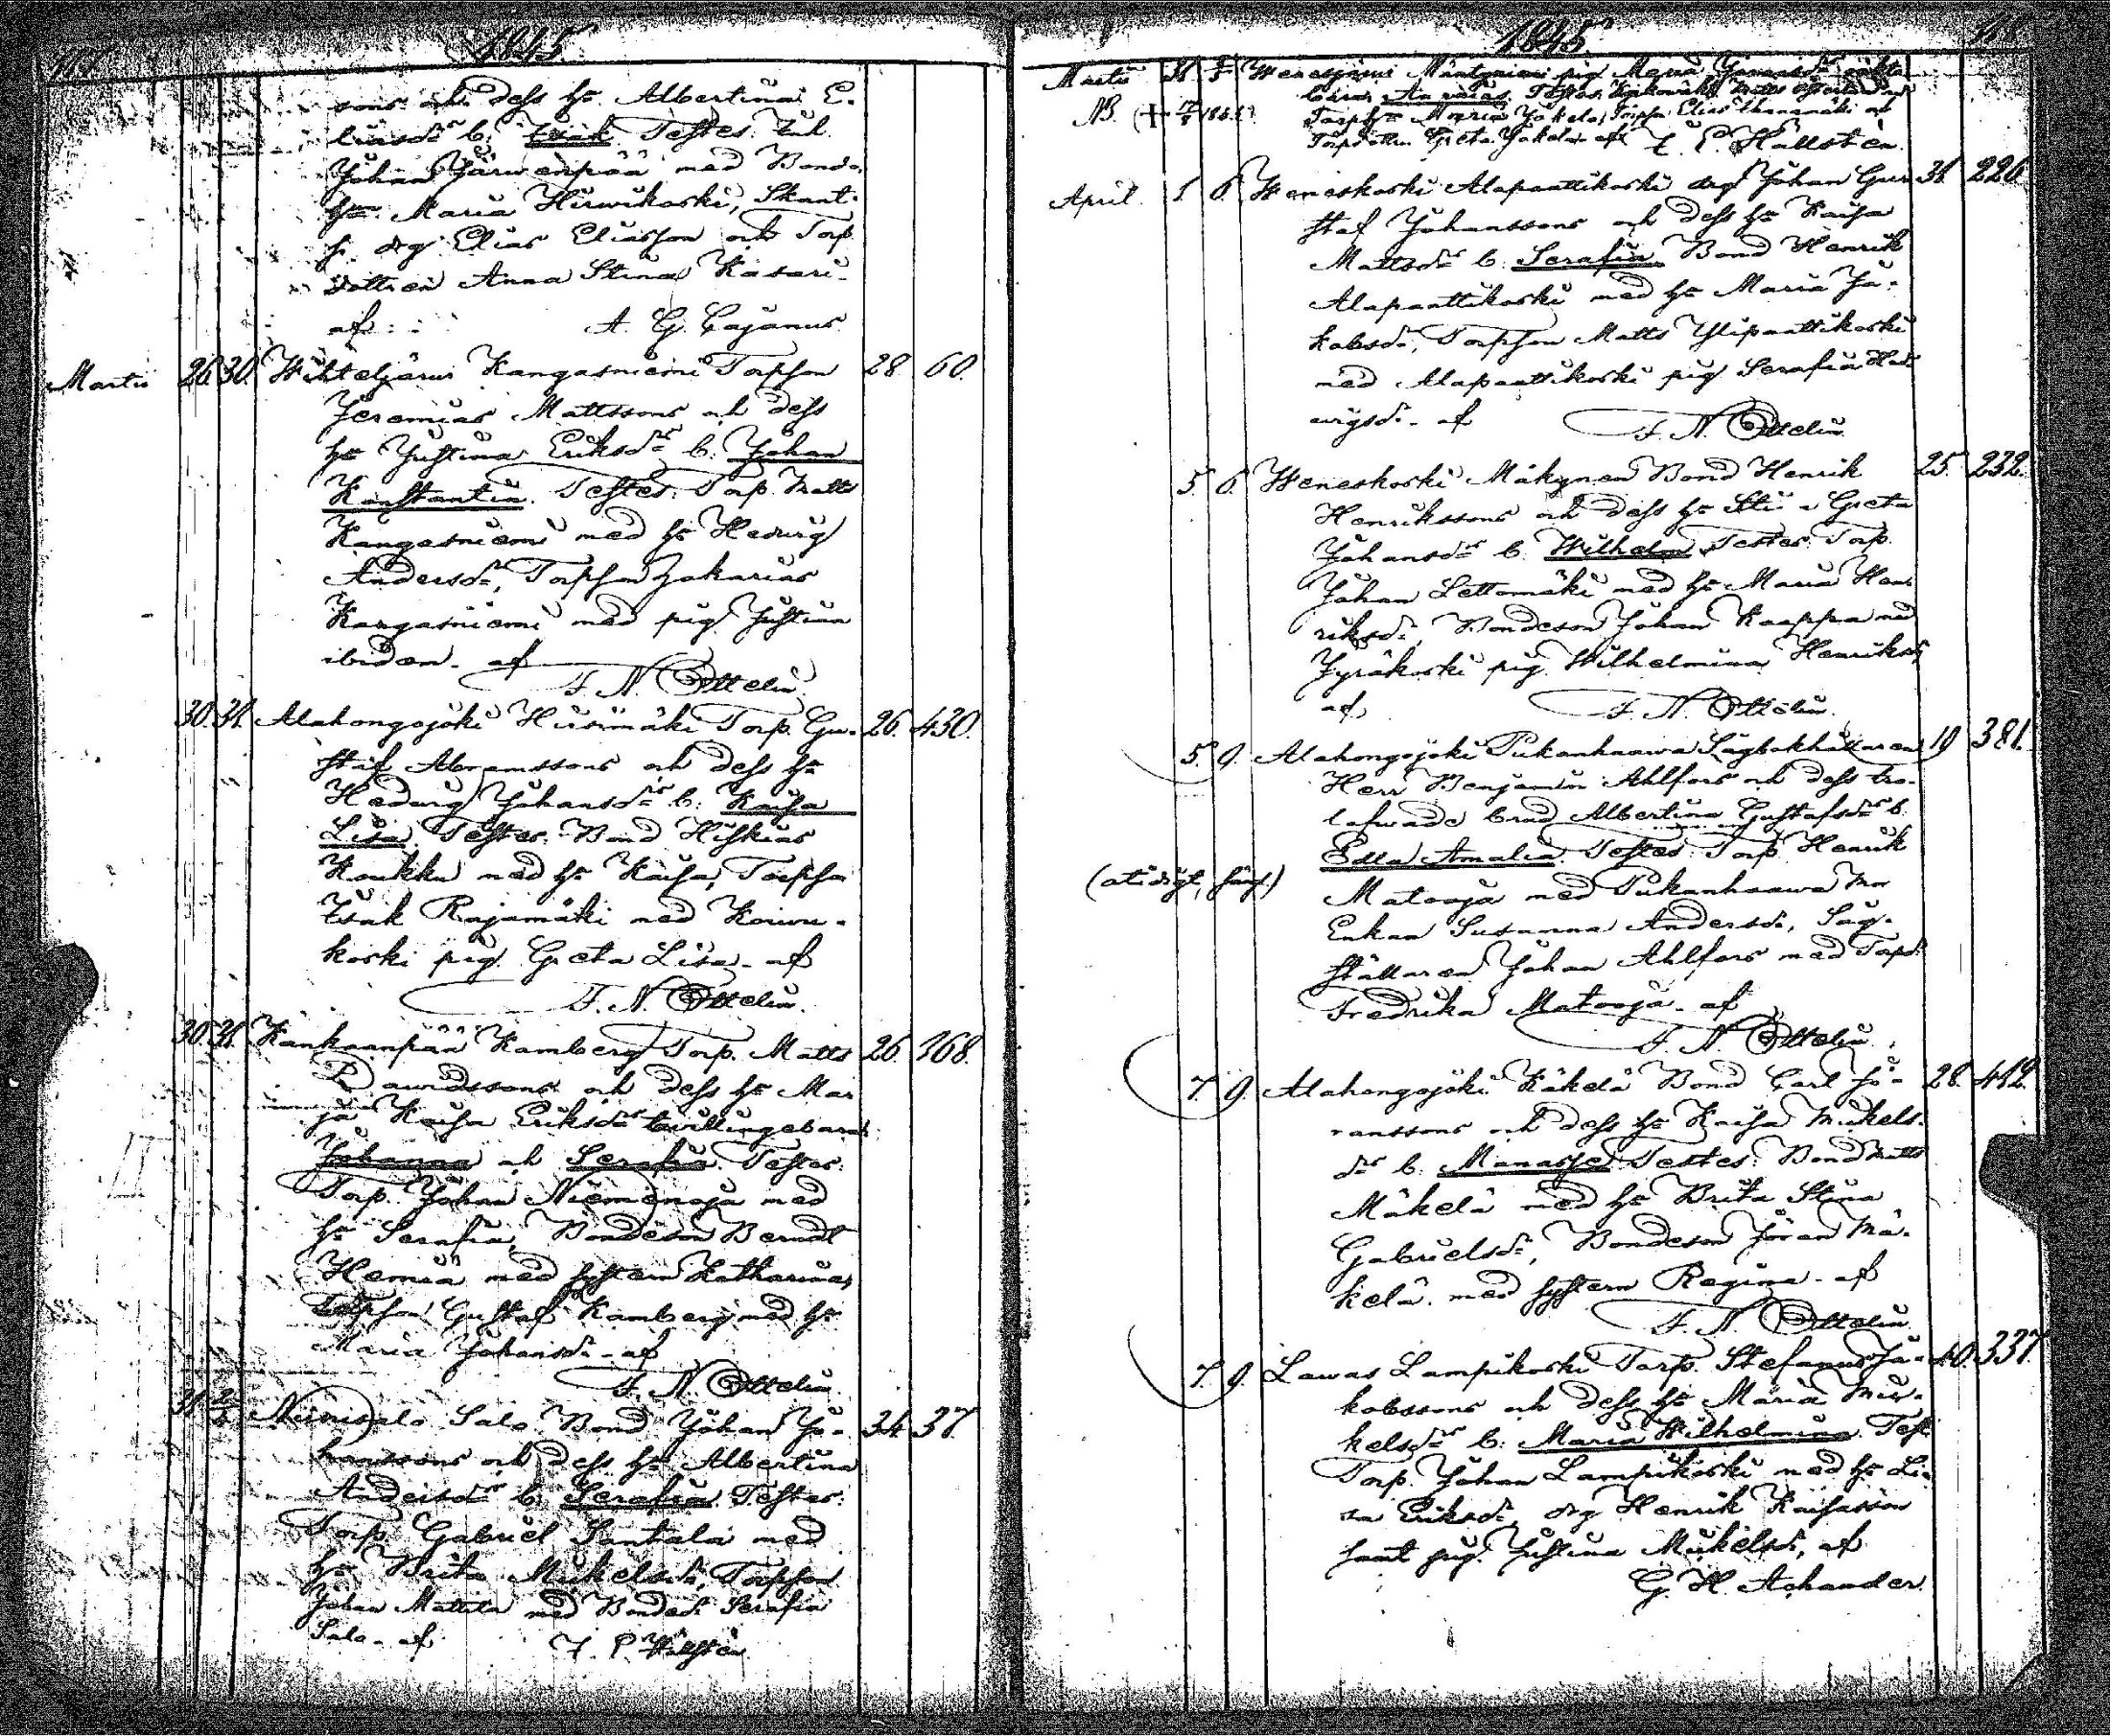 1845.
sons och dess h: Albertina E-
liæsdr b. Isak Testes. Inh.
Johan Järwenpää med Bond.
h: Maria Hirwikoski, Skant.
s. drg Elias Eliasson och Torp
dottren Anna Stina Kasari
af A. G. Cajanus.
Martii 26. 30. Wihteljärwi Kangasniemi Torpson 28 60.
Jeremias Mattssons och dess
h: Justina Eriksdr b. Johan
Konstantin. Testes: Torp. Matts
Kangasniemi med h: Hedwig
Andersdr, Torpson Zakarias
Kangasniemi med pig. Justina
ibidem. af
F. N. Ottelin.
30. 31. Alahongojoki Hiismäki Torp. Gu- 26. 430.
staf Abramssons och dess h:
Hedwig Johansdr b. Kaisa
Lisa. Testes. Bond Hiskias
Koukku med h: Kaisa, Torpson
Isak Rajamäki med Koiwu-
koski pig. Greta Lisa. af
F. N. Ottelin.
30. 31. Kankaanpää Kamberg Torp. Matts 26. 168.
Dawidssons och dess h: Mar
ja Kaisa Eriksdr twillingebarn:
Johanna och Serafia. Testes:
Torp. Johan Niemenoja med
h: Serafia, Bondeson Berndt
Hemiä med systern Katharina,
Torpson Gustaf Kamberg med h:
Maria Johansdr. af
F. N. Ottelin.
31. Niinisalo Salo Bond Johan Jo- 34. 37.
hanssons och dess h: Albertina
Andersdr b. Serafia. Testes:
Torp. Gabriel Santala med
h: Brita Mickelsdr, Torpson
Johan Mattila med Bondedr Serafia
Salo. af F. P. Hällstén
1845.
Martii 31. Wenesjärwi Mäntyniemi pig Maria
NB.
Torp h: Maria Jokela, Torpson Elias
Torpdottren Greta Jokela. af F. P. Hällstén.
April. 1. 6. Weneskoski Alapanttikoski drg Johan Gu- 31. 226.
staf Johanssons och dess h: Kaisa
Mattsdr b. Serafia. Bond Henrik
Alapanttikoski med h: Maria Ja-
kobsdr, Torpson Matts Ylipanttikoski
med Alapanttikoski pig Serafia Hed-
wigsdr. af
F. N. Ottelin.
5. 6. Weneskoski Mäkynen Bond Henrik 25. 232.
Henrikssons och dess h: Greta
Johansdr b. Wilhelm. Testes: Torp.
Johan Lettomäki med h: Maria Hen-
riksdr, Bondeson Johan Kaappa med
Jyräkoski pig. Wilhelmina Henriksdr,
af F. N. Ottelin.
5. 9. Alahongojoki Pukanhaawa Sågbokhållaren 19 381.
Herr Benjamin Ahlfors och dess tro-
lofwade brud Albertina Gustafsdr b.
Edla Amalia. Testes: Torp. Henrik
Matooja med Pukanhaawa Mor
Enkan Susanna Andersdr, Såg-
ställaren Johan Ahlfors med Torpd.
Fredrika Matooja. af
F. N. Ottelin.
7. 9. Alahongojoki Käkelä Bond Carl Jö- 28. 412.
ranssons och dess h: Kaisa Mickels-
dr b. Manasse. Testes: Bond Matts
Mäkelä med h: Brita Stina
Gabrielsdr, Bondeson Jöran Mä-
kelä med systern Regina. af
F. N. Ottelin.
7. 9. Lawas Lampikoski Torp. Stefanus Ja- 40. 337.
kobssons och dess h: Maria Mic-
kelsdr b. Maria Wilhelmina. Test.
Torp. Johan Lampikoski med h: Li-
sa Eriksdr, drg Henrik Kaisasson
samt pig. Justina Mickelsdr, af
G. H. Achander.